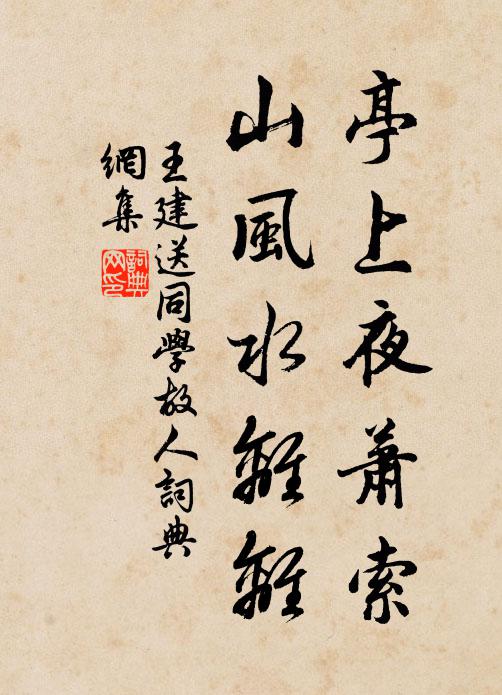 亭上夜蕭索
山風水離離
王建送同學故人詞典
網集
詞典
网印